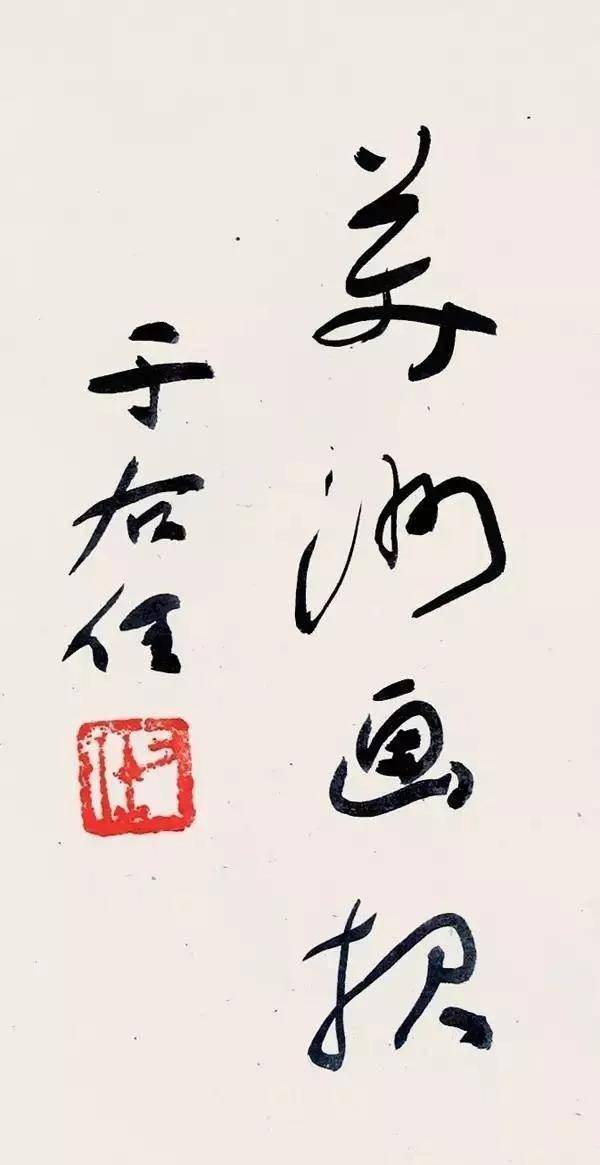 美洲画报
于右任